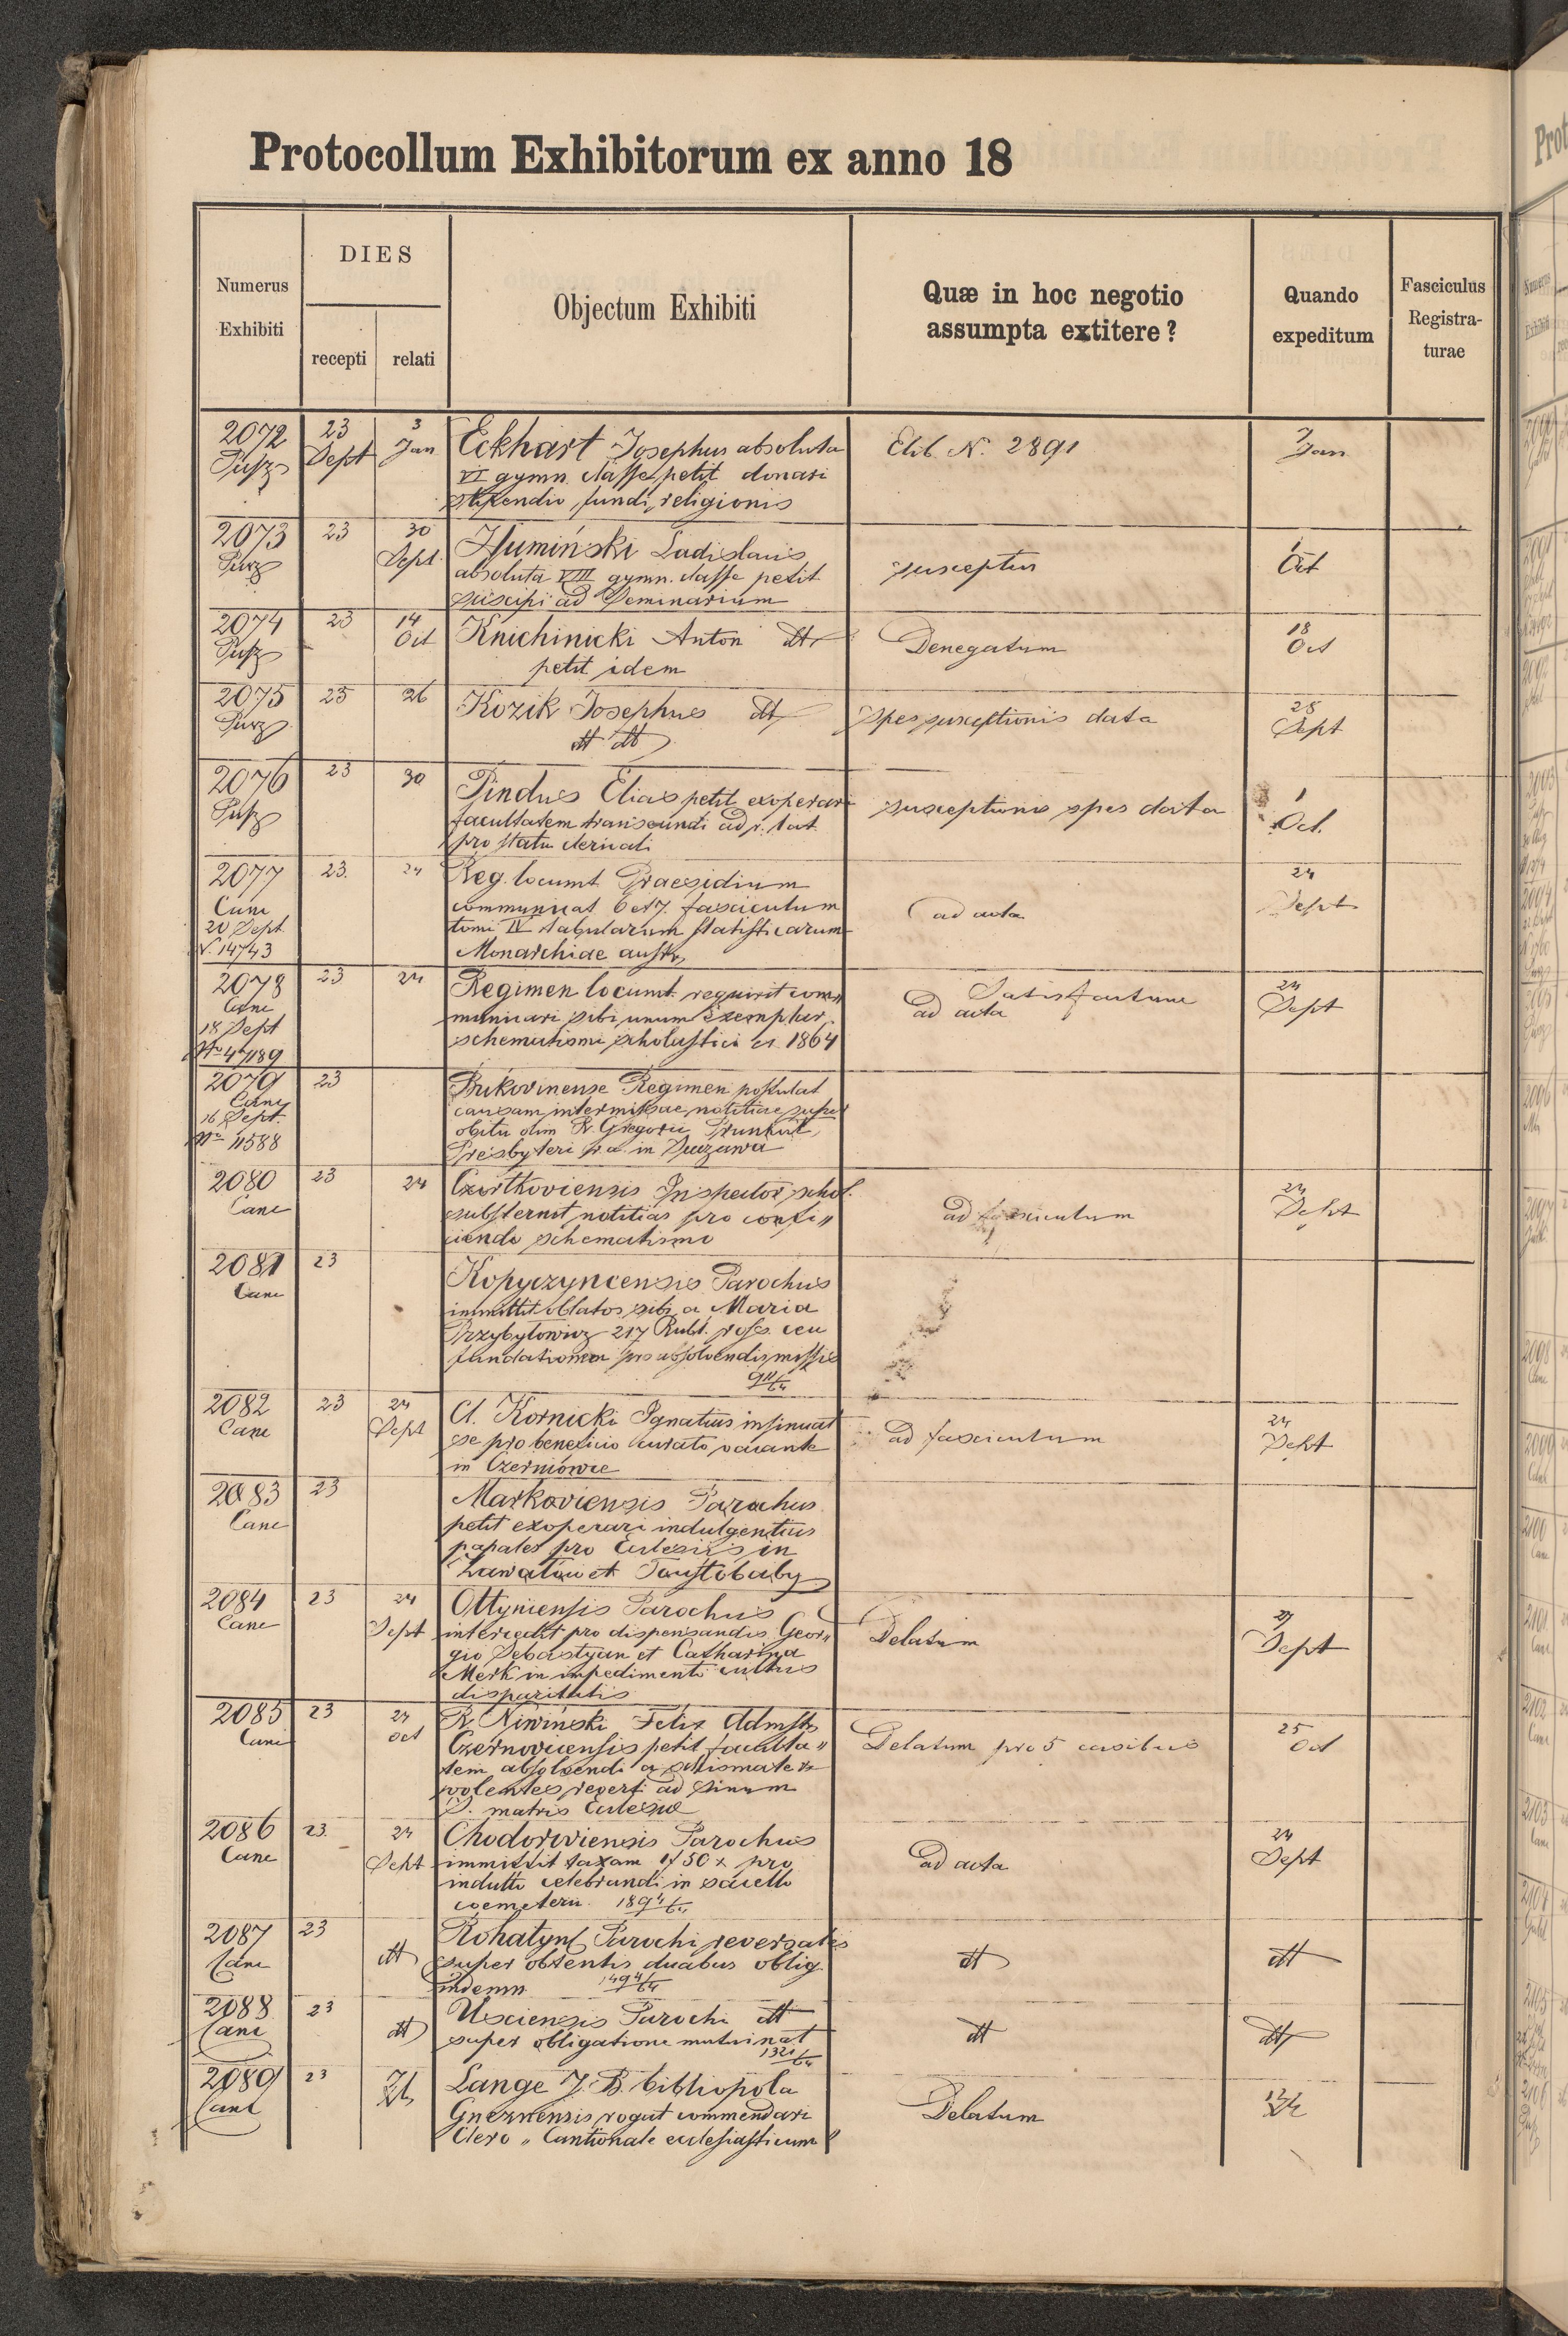 Protocollum Exhibitorum ex anno 18
Numerus Exhibiti
DIES
recepti relati
Objectum Exhibiti
Quæ in hoc negotio
assumpta extitere?
Quando
expeditum
Fasciculus
Registra-
turae
2072 23 Sept 3 Jan
Eckhart Josephus absoluta
VI gymn. classe petit donari
stipendio fundi religionis
N. 2891
7 Jan
2073 23 30 Sept
Humiński Ladislaus
absoluta VIII gymn. classe petit
suscipi ad Seminarium
susceptus
1 Oct
2074 23 14 Oct
Knichinicki Anton dtt
petit idem
Denegatum
18 Oct
2075 23 26
Kozik Josephus dtt
dtt dtt
spes susceptionis data
28 Sept
2076 23 30
Pindus Elias petit exoperari
facultatem transeundi ad r. lat.
pro statu clericali
susceptionis spes data
1 Oct.
2077 23. 24
Canc
20 Sept
N. 14743
Reg. locumt. Praesidium
communicat 6 et 7. fasciculum
tomi IV tabularum statisticarum
Monarchiae austr.
ad acta
24 Sept
2078 23 24
Canc
18 Sept
No 47189
Regimen locumt. requirit com„
municari sibi unum exemplar
schematismi scholastici a. 1864
Satisfactum
ad acta
24 Sept
2079 23
Canc
16 Sept.
No 11588
Bukovinense Regimen postulat
causam intermissae notitiae super
obitu olim R. Gregorii
Presbyteri r. a. in Suczawa
2080 23 24
Canc
Czortkoviensis Inspector schol.
substernit notitias pro confi„
ciendo schematismo
ad fasciculum
24 Sept
2081 23
Canc
Kopyczyncensis Parochus
immittit oblatos sibi a Maria
Przybyłowicz 217 Rubl. ross. ceu
fundationem pro absolvendis missis
2082 23 24 Sept
Canc
Cl. Kornicki Ignatius insinuat
se pro beneficio curato vacante
in Czerniowce
ad fasciculum
24 Sept
2083 23
Canc
Markoviensis Parochus
petit exoperari indulgentias
papales pro Eclesiis in
Zawałów et Toustobaby
2084 23 24 Sept
Canc
Ottyniensis Parochus
intercedit pro dispensandis Geor„
gio Sebastyan et Catharina
Merk in impedimento cultus
disparitatis
Delatum
29 Sept
2085 23 24 oct
Canc
R. Niwiński Felix Admstr
Czernovicensis petit faculta„
tem absolvendi a schismate
volentes reverti ad sinum
S. matris Eclesiae
Delatum pro 5 casibus
25 Oct
2086 23. 24 Sept
Canc
Chodoroviensis Parochus
immittit taxam 1f 50x pro
indulto celebrandi in sacello
coemeterii 189 4/64
ad acta
24 Sept
2087 23 dtt
Canc
Rohatyn Parochi reversales
super obtentis duabus oblig.
indemn 149 4/64
dtt
dtt
2088 23 dtt
Canc
Usciensis Parochi dtt
super obligatione mutui nat
1321/64
dtt
dtt
2089 23
Canc
Lange J. B. bibliopola
Gneznensis rogat commendari
Clero „Cantionale ecclesiasticum"
Delatum